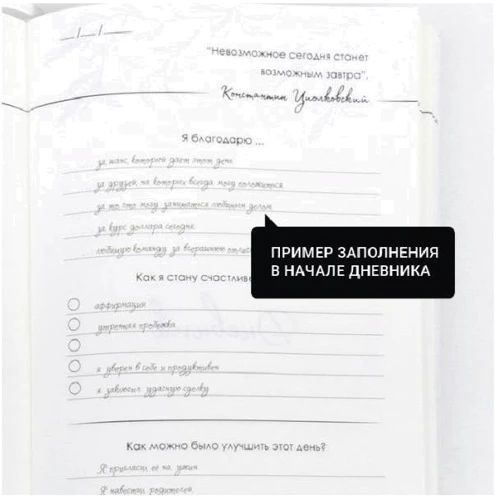 __/__/__
"Невозможное сегодня станет
возможным завтра".
Константин Циолковский
Я благодарю ...
за шанс, который дает этот день
за друзей, на которых всегда могу положиться
за то что могу заниматься любимым делом
за курс доллара сегодня
любимую команду за вчерашнюю
ПРИМЕР ЗАПОЛНЕНИЯ
В НАЧАЛЕ ДНЕВНИКА
Как я стану счастливе
аффирмации
утренняя пробежка
я уверен в себе и продуктивен
я заключил удачную сделку
Как можно было улучшить этот день?
Я пригласил ее на ужин
Я навестил родителей